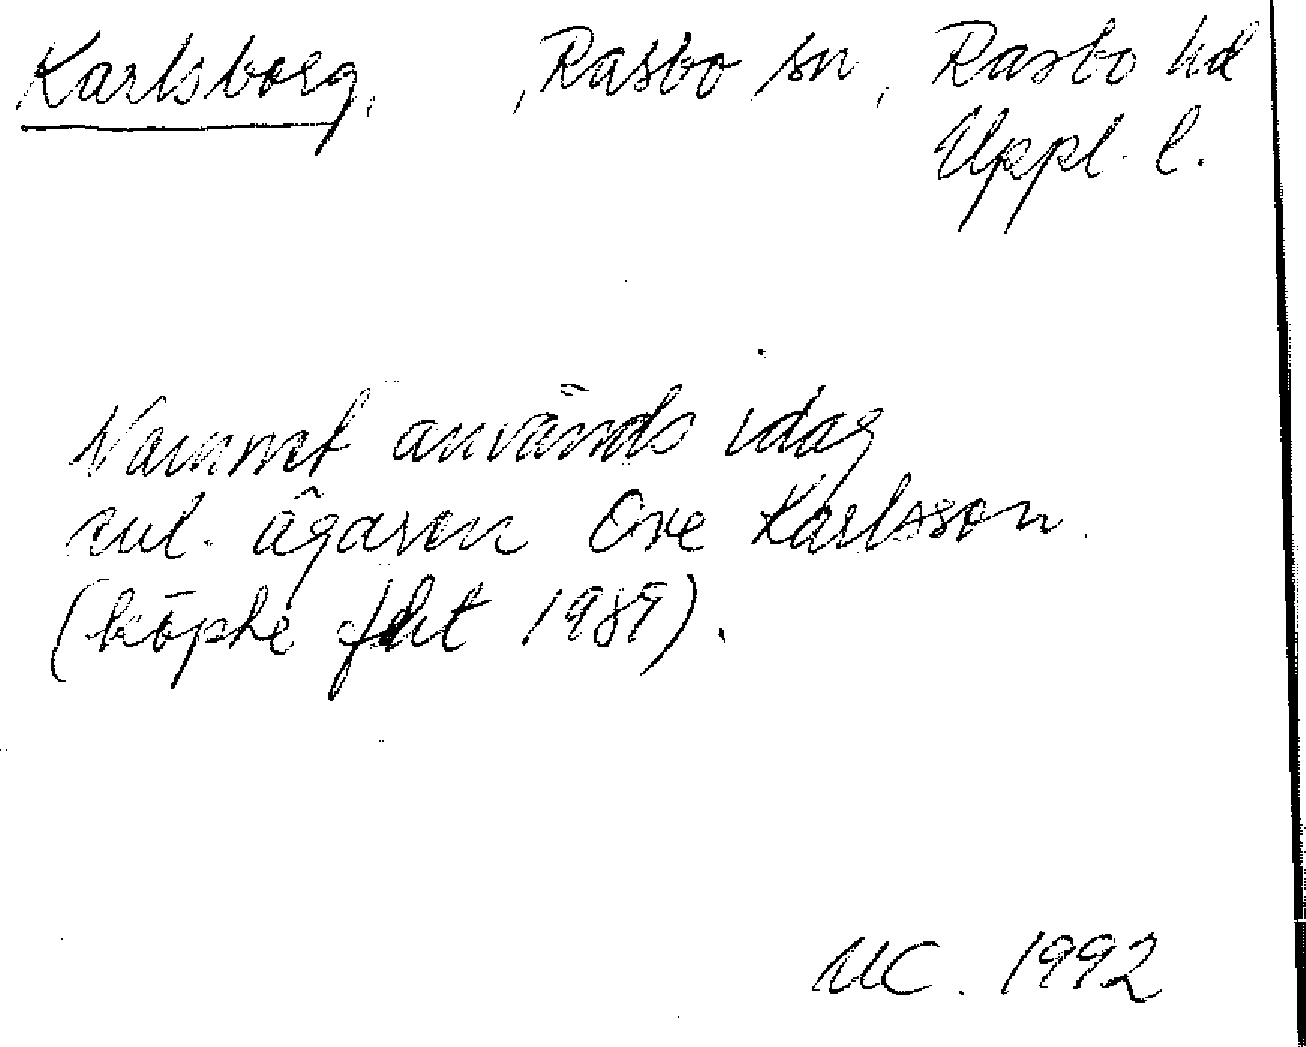 Karlsborg, , Rasbo sn, Rasbo hd
Uppl. l.
Namnet används idag
enl. ägaren Ove Karlsson.
(köpte fast 1989).
UC. 1992